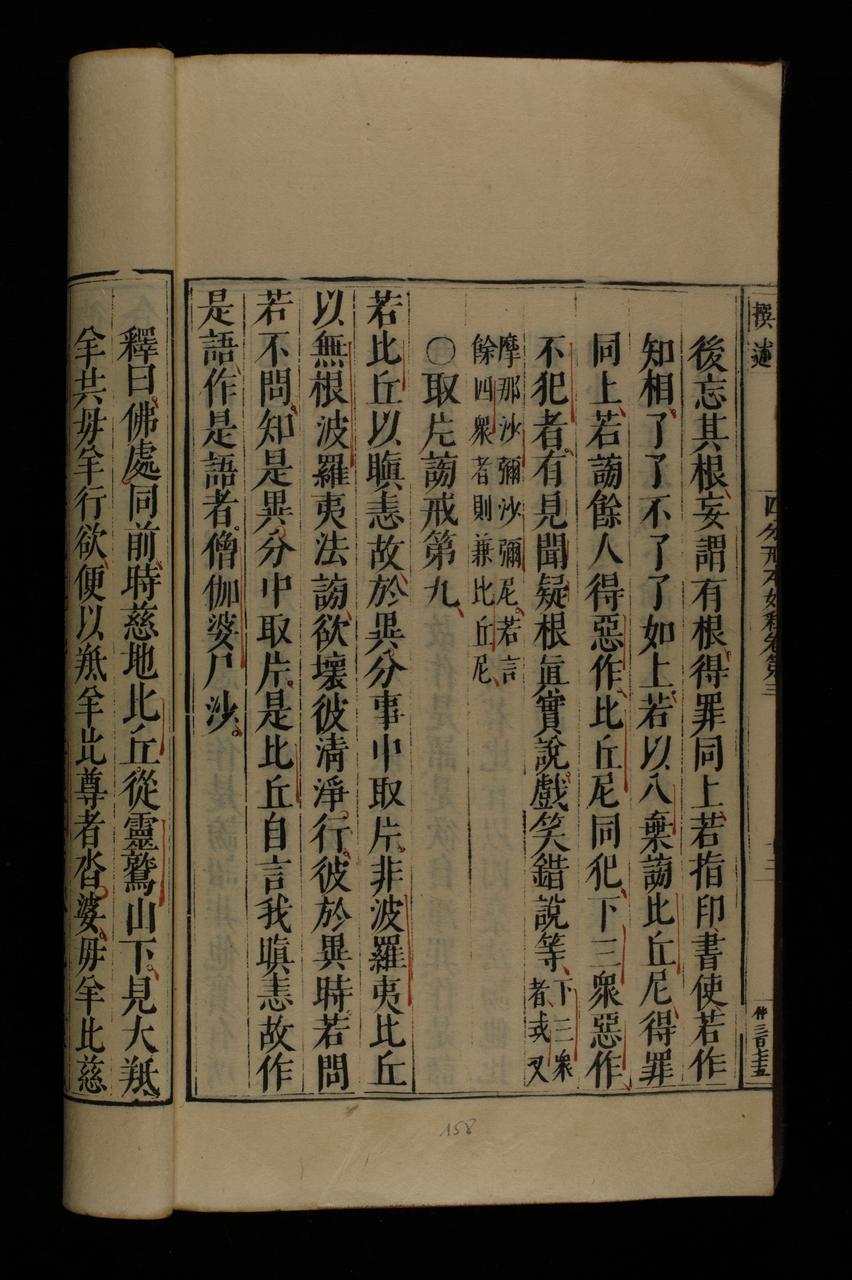 撰述
四分戒本如釋卷第三
後忘其根妄謂有根得罪同上若指印書使若作
知相了了不了了如上若以八棄謗比丘尼得罪
同上若謗餘人得惡作比丘尼同犯下三眾惡作
不犯者有見聞疑根真實說戲笑錯說等下三眾
者式叉
摩那沙彌沙彌尼若言
餘四眾者則兼比丘尼
〇取片謗戒第九
若比丘以瞋恚故於異分事中取片非波羅夷比丘
以無根波羅夷法謗欲壞彼清淨行彼於異時若問
若不問知是異分中取片是比丘自言我瞋恚故作
是語作是語者僧伽婆尸沙
釋曰佛處同前時慈地比丘從靈鷲山下見大羝
羊共母羊行欲便以羝羊比尊者沓婆母羊比慈
158